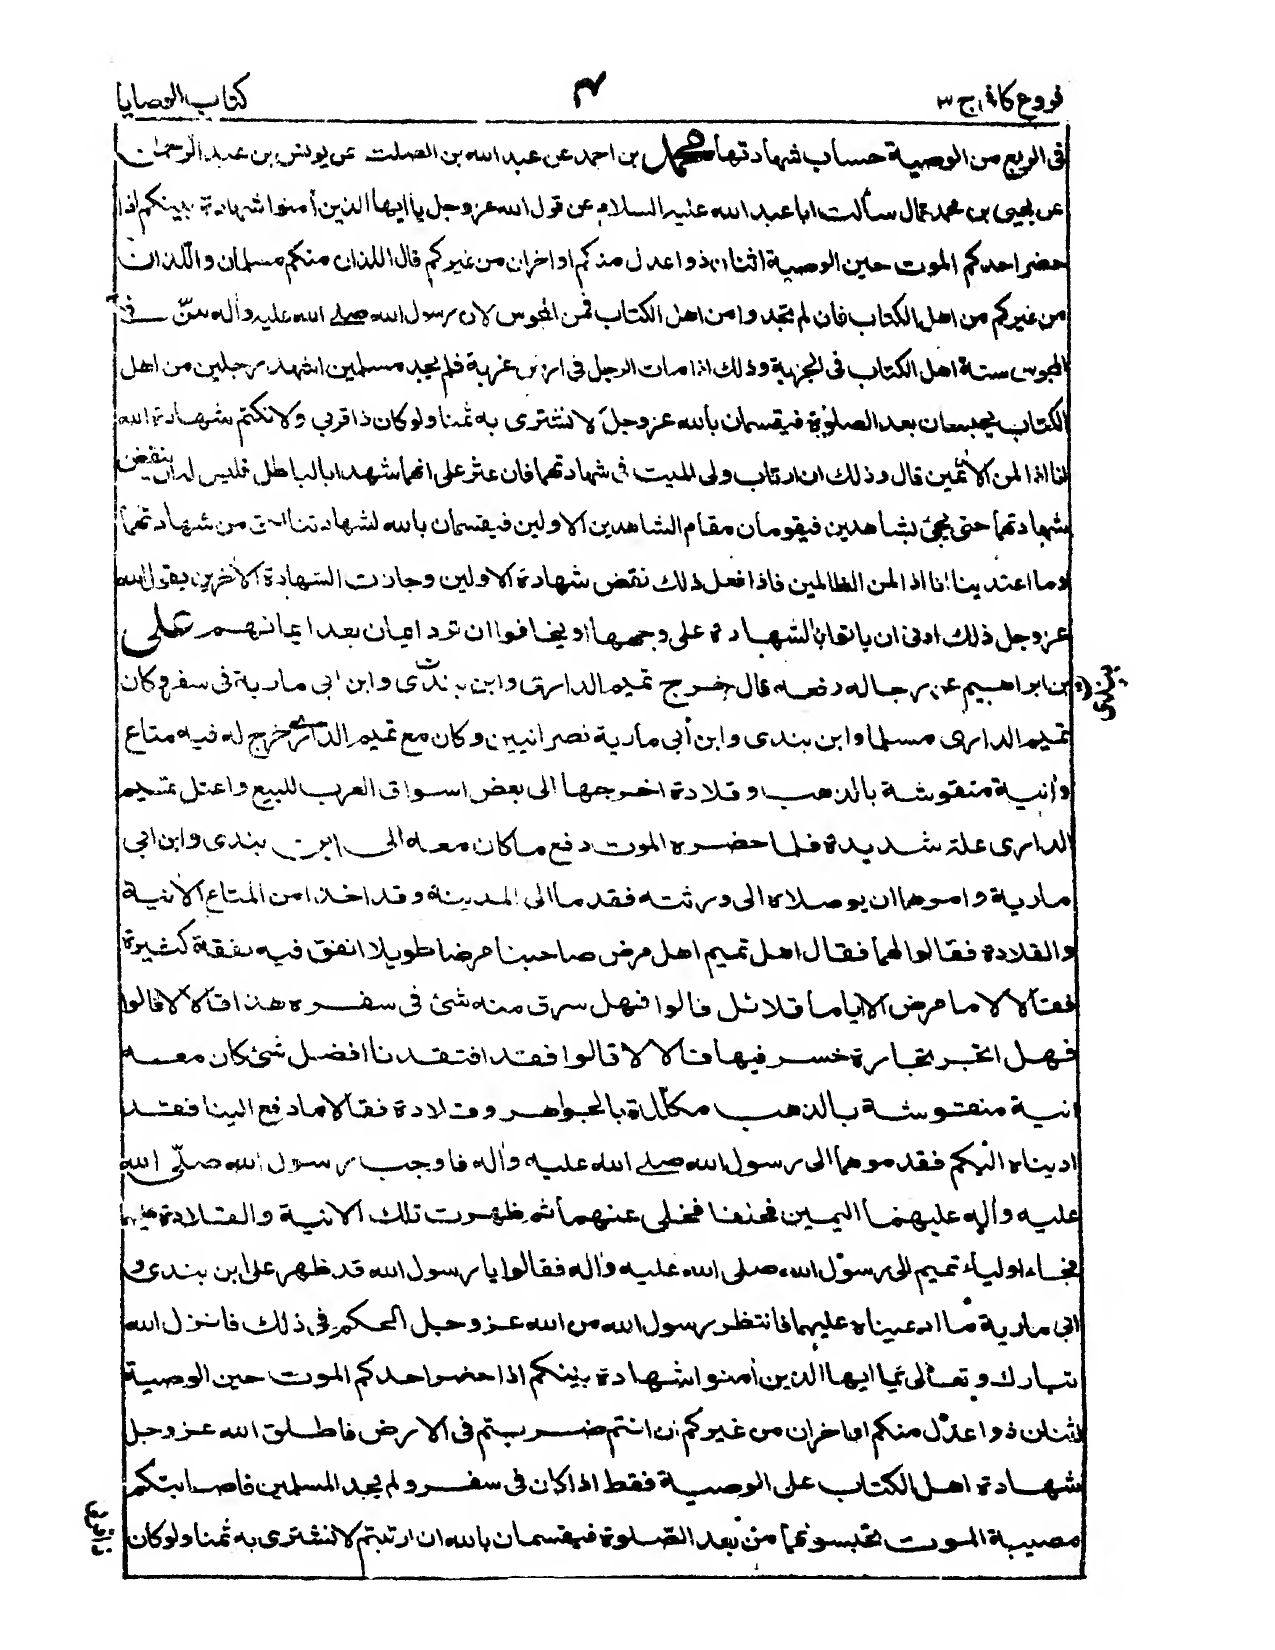 فروع كافى ج ٣
٤
كتاب الوصايا
فى الربع من الوصية حساب شهادتها محمد بن احمد عن عبد الله بن الصلت عن يونس بن عبد الرحمان
عن يحيى بن محمد قال سألت ابا عبد الله عليه السلام عن قول الله عز وجل يا ايها الذين أمنوا شهادة بينكم اذا
حضر احدكم الموت حين الوصية اثنان ذوا عدل منكم او اخران من غيركم قال اللذان منكم مسلمان واللذان
من غيركم من اهل الكتاب فان لم تجدوا من اهل الكتاب فمن المجوس لان رسول الله صلى الله عليه وأله سنّ فى
المجوس سنة اهل الكتاب فى الجزية وذلك اذا مات الرجل فى ارض غربة فلم يجد مسلمين اشهد رجلين من اهل
الكتاب يحبسان بعد الصلوة فيقسمان بالله عز وجل لا نشترى به ثمنا ولو كان ذا قربى ولا نكتم شهادة الله
انا اذا لمن الأثمين قال وذلك ان ارتاب ولى الميت فى شهادتهما فان عثر على انهما شهدا بالباطل فليس له ان ينقض
شهادتهما حتى يجئ بشاهدين فيقومان مقام الشاهدين الاولين فيقسمان بالله لشهادتنا احق من شهادتهما
وما اعتدينا انا اذا لمن الظالمين فاذا فعل ذلك نقض شهادة الاولين وجازت الشهادة الأخرين يقول الله
عز وجل ذلك ادنى ان ياتوا بالشهادة على وجهها او يخافوا ان ترد ايمان بعد ايمانهم على
بن ابراهيم عن رجاله رفعه قال خرج تميم الدارى وابن بندى وابن ابى مارية فى سفر وكان
تميم الدارى مسلما وابن بندى وابن أبى مارية نصرانيين وكان مع تميم الدارى خرج له فيه متاع
وأنية منقوشة بالذهب وقلادة اخرجها الى بعض اسواق العرب للبيع واعتل تميم
الدارى علة شديدة فلما حضره الموت دفع ما كان معه الى ابن بندى وابن ابى
مارية وامرهما ان يوصلاه الى ورثته فقدما الى المدينة وقد اخذا من المتاع الأنية
والقلادة فقالوا لهما فقال اهل تميم اهل مرض صاحبنا مرضا طويلا انفق فيه نفقة كثيرة
فقالا لا ما مرض الا اياما قلائل قالوا فهل سرق منه شئ فى سفره هذا قالا لا قالوا
فهل اتجر تجارة خسر فيها قالا لا قالوا فقد افتقدنا افضل شئ كان معه
انية منقوشة بالذهب مكلّلة بالجواهر وقلادة فقالا ما دفع الينا فقد
اديناه اليكم فقدموهما الى رسول الله صلى الله عليه وأله فاوجب رسول الله صلّى الله
عليه وأله عليهما اليمين فحلفا فخلى عنهما ثم ظهرت تلك الانية والقلادة عليهما
فجاء اولياء تميم الى رسول الله صلى الله عليه وأله فقالوا يا رسول الله قد ظهر على ابن بندى و
ابى مارية ما ادعيناه عليهما فانتظر رسول الله من الله عز وجل الحكم فى ذلك فانزل الله
تبارك وتعالى يا ايها الذين أمنوا شهادة بينكم اذا حضر احدكم الموت حين الوصية
اثنان ذوا عدل منكم او اخران من غيركم ان انتم ضربتم فى الارض فاطلق الله عز وجل
شهادة اهل الكتاب على الوصية فقط اذا كان فى سفر ولم يجد المسلمين فاصابتكم
مصيبة الموت تحبسونهما من بعد الصّلوة فيقسمان بالله ان ارتبتم لا نشترى به ثمنا ولو كان